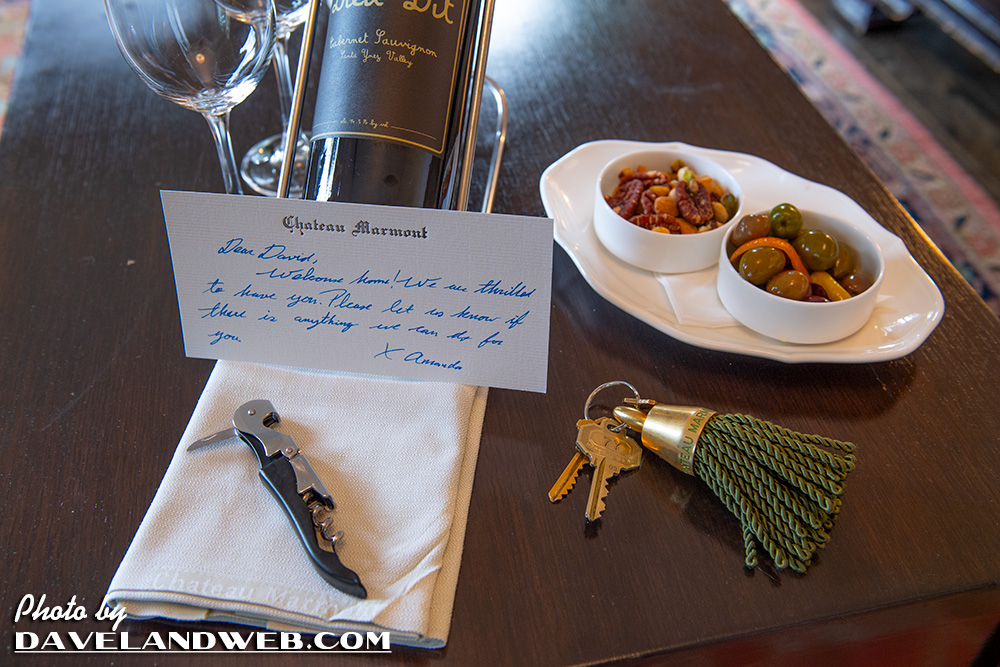 Cabernet Sauvignon
Santa Ynez Valley
Chateau Marmont
Dear David,
Welcome home! We are thrilled
to have you. Please let us know if
there is anything we can do for
you.
X Amanda
EAU MAR
Chateau Marmont
Photo by
DAVELANDWEB.COM